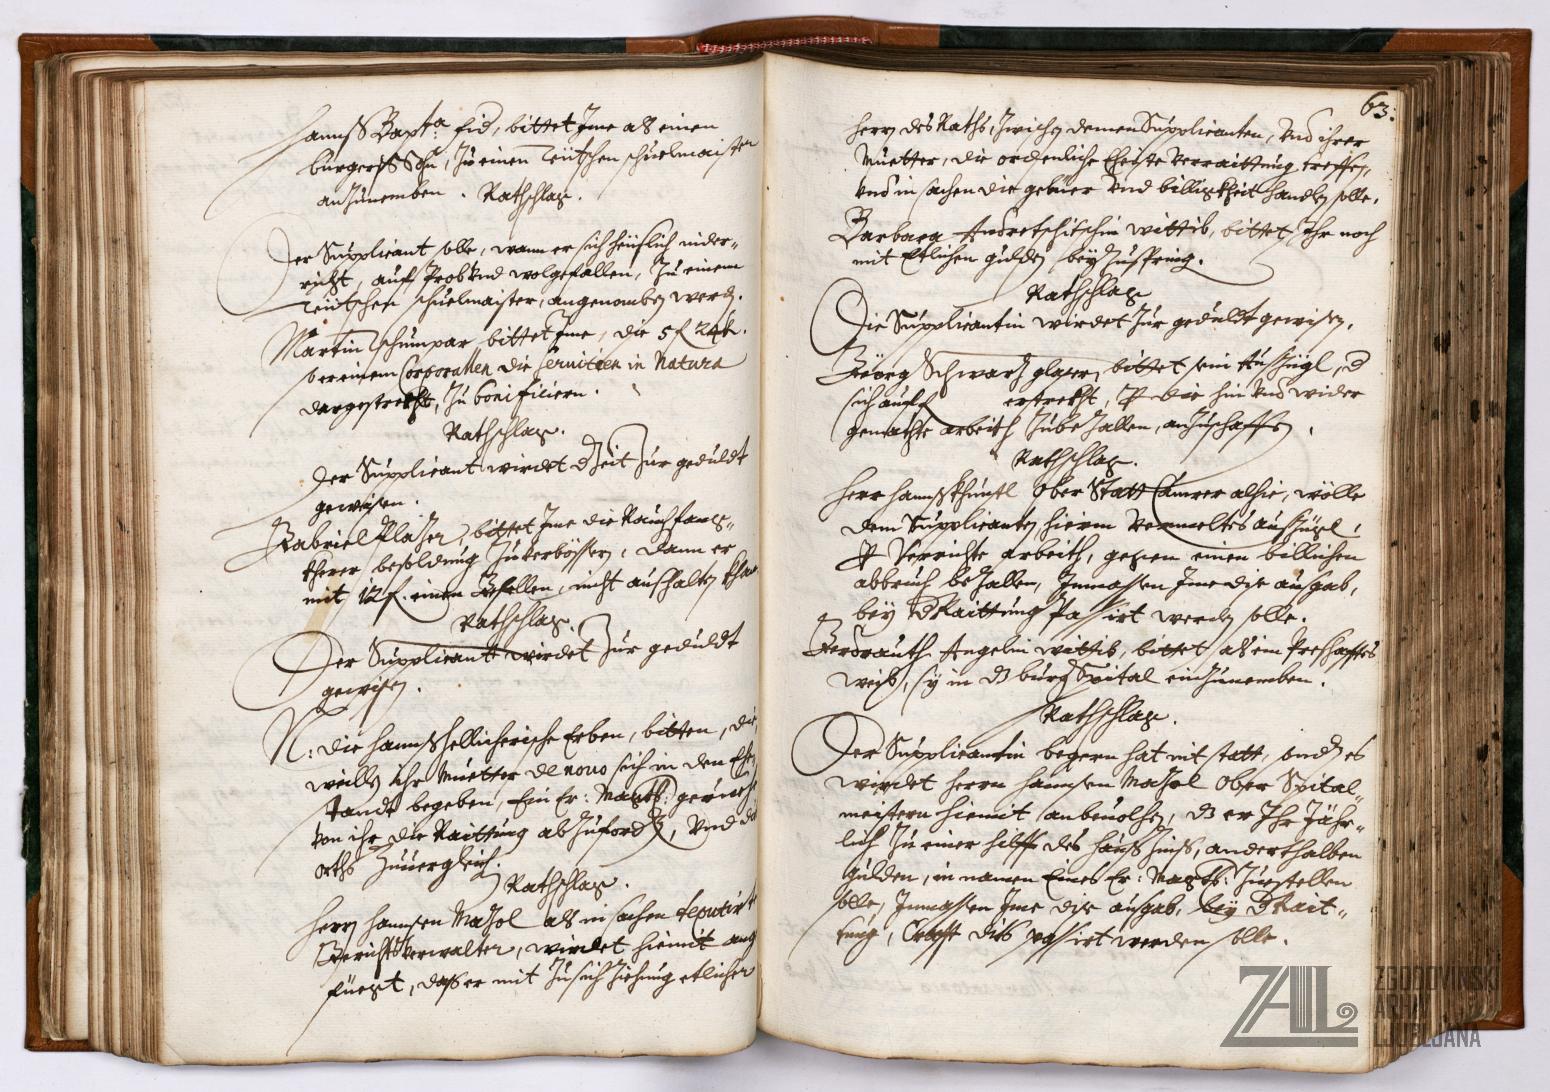 Hannß Bapt:a Fid, bittet Ime als einen
burgerß Sohn, zu einen Teütschen schuelmaister
anzunemben. Rathschlag.
Der Supplicant solle, wann er sich heüslich nider-
richt, auf Prob und wolgefallen, zu einem
Teütschen schuelmaister, angenomben werden.
Martin bittet Ime, die 5 f 24 k.
so er einem Corporallen die Servitien in Natura
dargestrekht, zu bonificiern.
Rathschlag.
Der Supplicant wirdet d Zeit zur gedult
gewisen.
Gabriel Plaser, bittet Ime die Rauchfang-
kherer besoldung zuverbössern, dann er
mit 12 f. einen Gsellen, nicht aufhalten khan
Rathschlag.
Der Supplicant wirdet zur gedult
gewisen.
N: die Hannß Erben, bitten, die
weilln ihr Muetter de nouo sich in den Ehe-
standt begeben, Ein Er: Magst: geruehe
von ihr die Raittung abzufordern, und
orths zuuergleichen.
Rathschlag.
Herrn Hannsen als in sachen deputirt
Gerichtsverwalter, wirdet hiemit
füegt, daß er mit zu sich ziehung etlicher
63:
Herrn des Raths, zwischen denen Supplicanten, und ihrer
Muetter, die ordenliche Verraittung treffen,
und in sachen die gebüer und billigkheit handlen solle.
Barbara wittib, bittet Ihr noch
mit Etlichen gulden beyzuspring.
Rathschlag
Die Supplicantin wirdet zur gedult gewisen.
Geörg Schwarz glaser, bittet sein Außzügl,
sich auf f erstrekht, die hin und wider
gemachte arbeith zubezallen, anzuschaffen.
Rathschlag.
Herr Hannß Khunstl Ober Statt Camrer alhie, wölle
dem Supplicanten hierin vermeltes außzügel,
verrichte arbeith, gegen einen billichen
abbruch bezallen, Inmassen Ime dise ausgab,
bey d Raittung Passirt werden solle.
Gerdrauth Angelin wittib, bittet als ein Presthafftes
weib, sy in d burg Spital einzunemben.
Rathschlag.
Der Supplicantin begern hat nit statt, es
wirdet herrn Hannsen Ober Spital-
meistern hiemit anbeuolhen, d er Ihr Jähr-
lich zu einer hilff des hauß Zinß, anderthalben
gulden, in namen Eines Er: Magst: zuestellen
solle, Inmassen Ime dise ausgab, bey d Rait-
tung, Crafft dis passirt werden solle.
ZAL
ZGODOVINSKI
ARHIV
LJUBLJANA